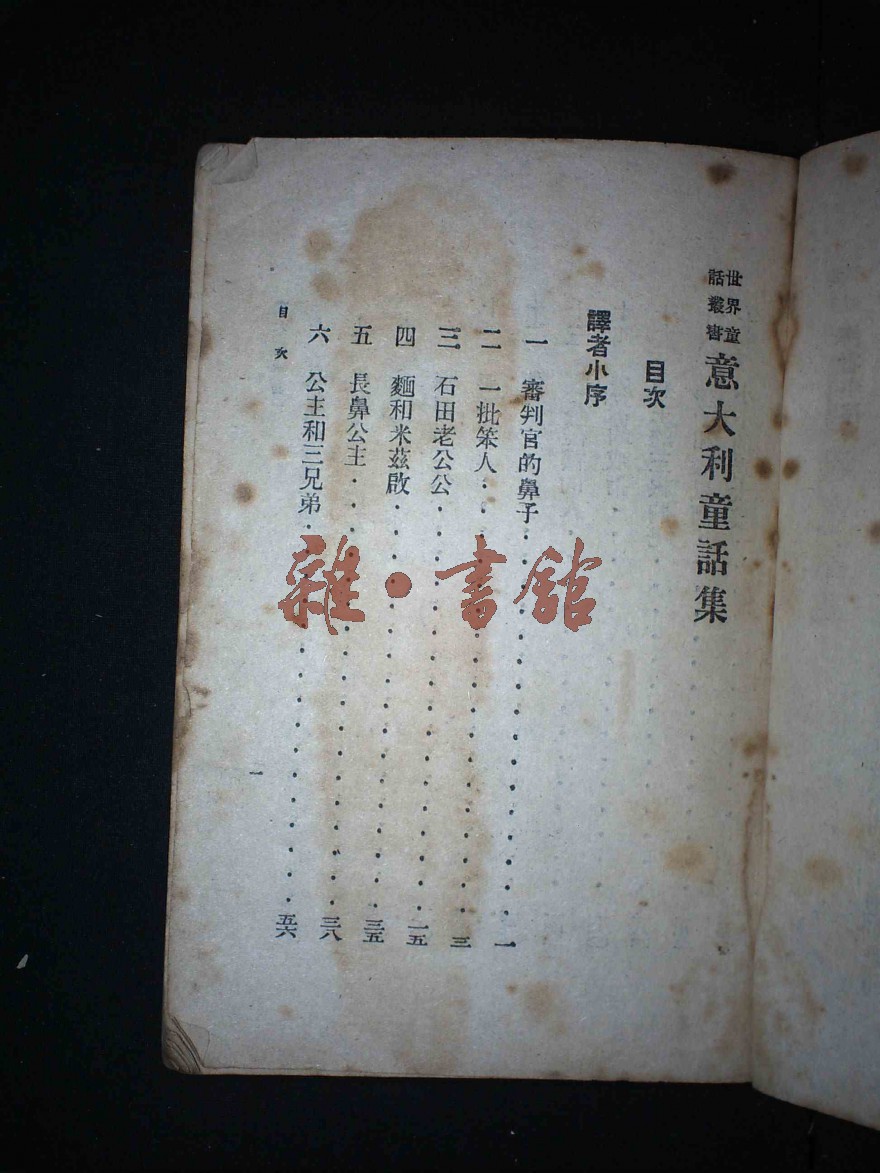 世界童話叢書 意大利童話集
目次
譯者小序
一 審判官的鼻子 一
二 一批笨人 三
三 石田老公公 一五
四 麵和米茲啟 三五
五 長鼻公主 三八
六 公主和三兄弟 五六
目次
一
雜·書館